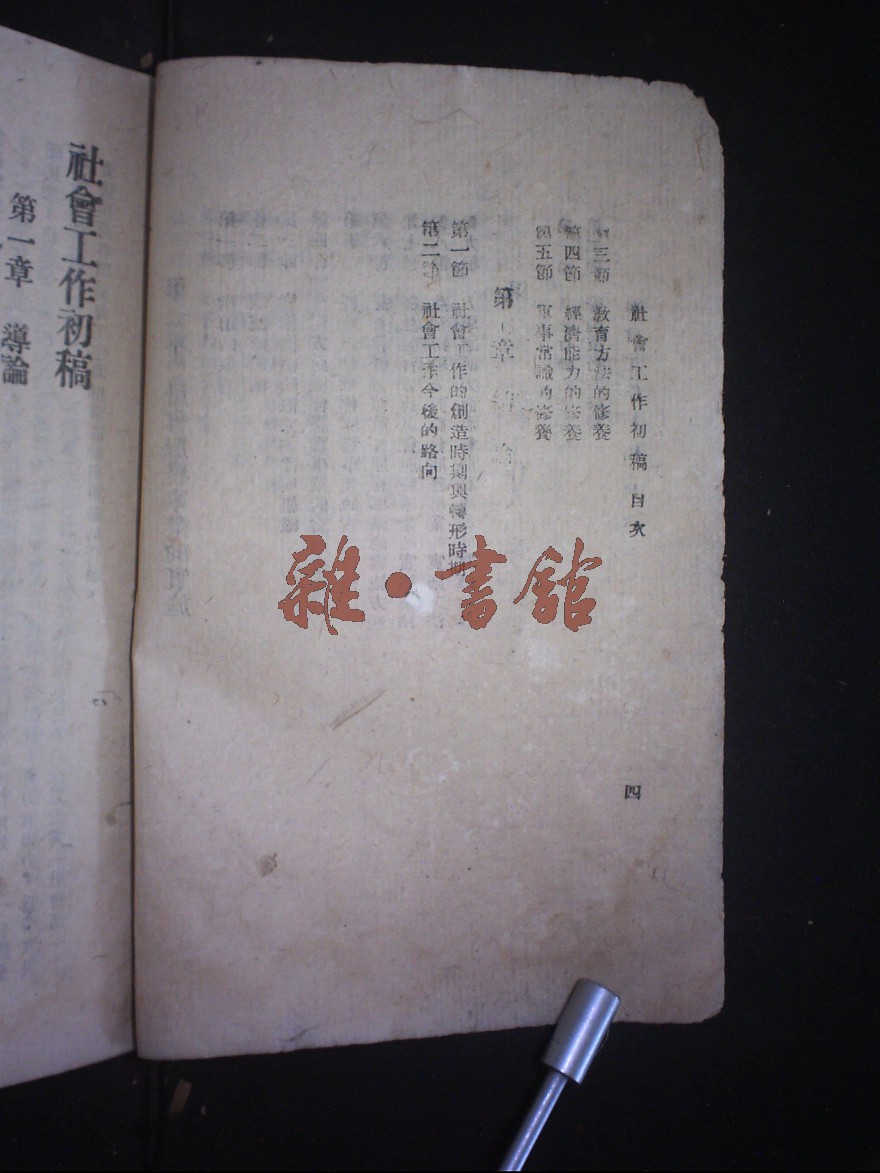 社會工作初稿 目次
四
第三節 教育方法的修養
第四節 經濟能力的修養
第五節 軍事常識的修養
第 章 結論
第一節 社會工作的創造時期與轉形時期
第二節 社會工作今後的路向
社會工作初稿
第一章 導論
雜·書館